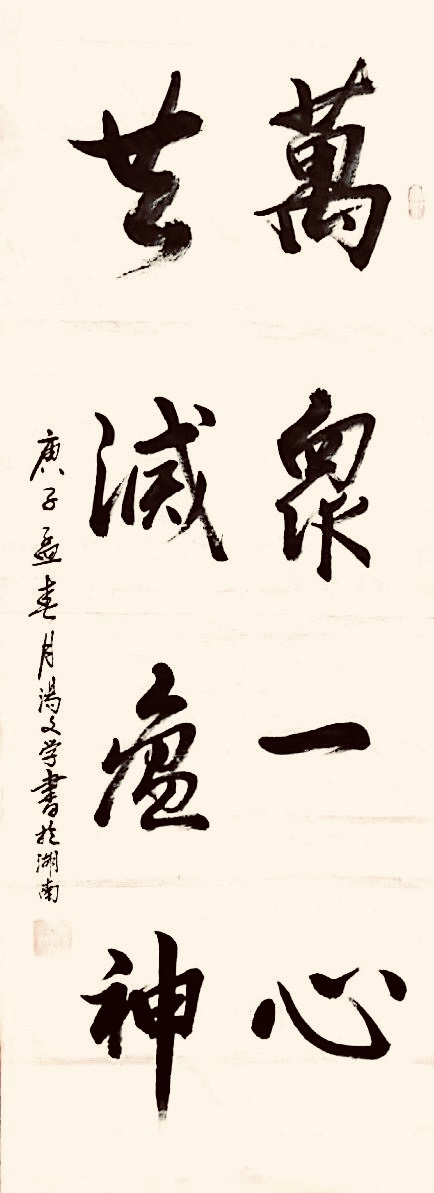 萬衆一心
共滅瘟神
庚子孟春月湯文学書於湖南